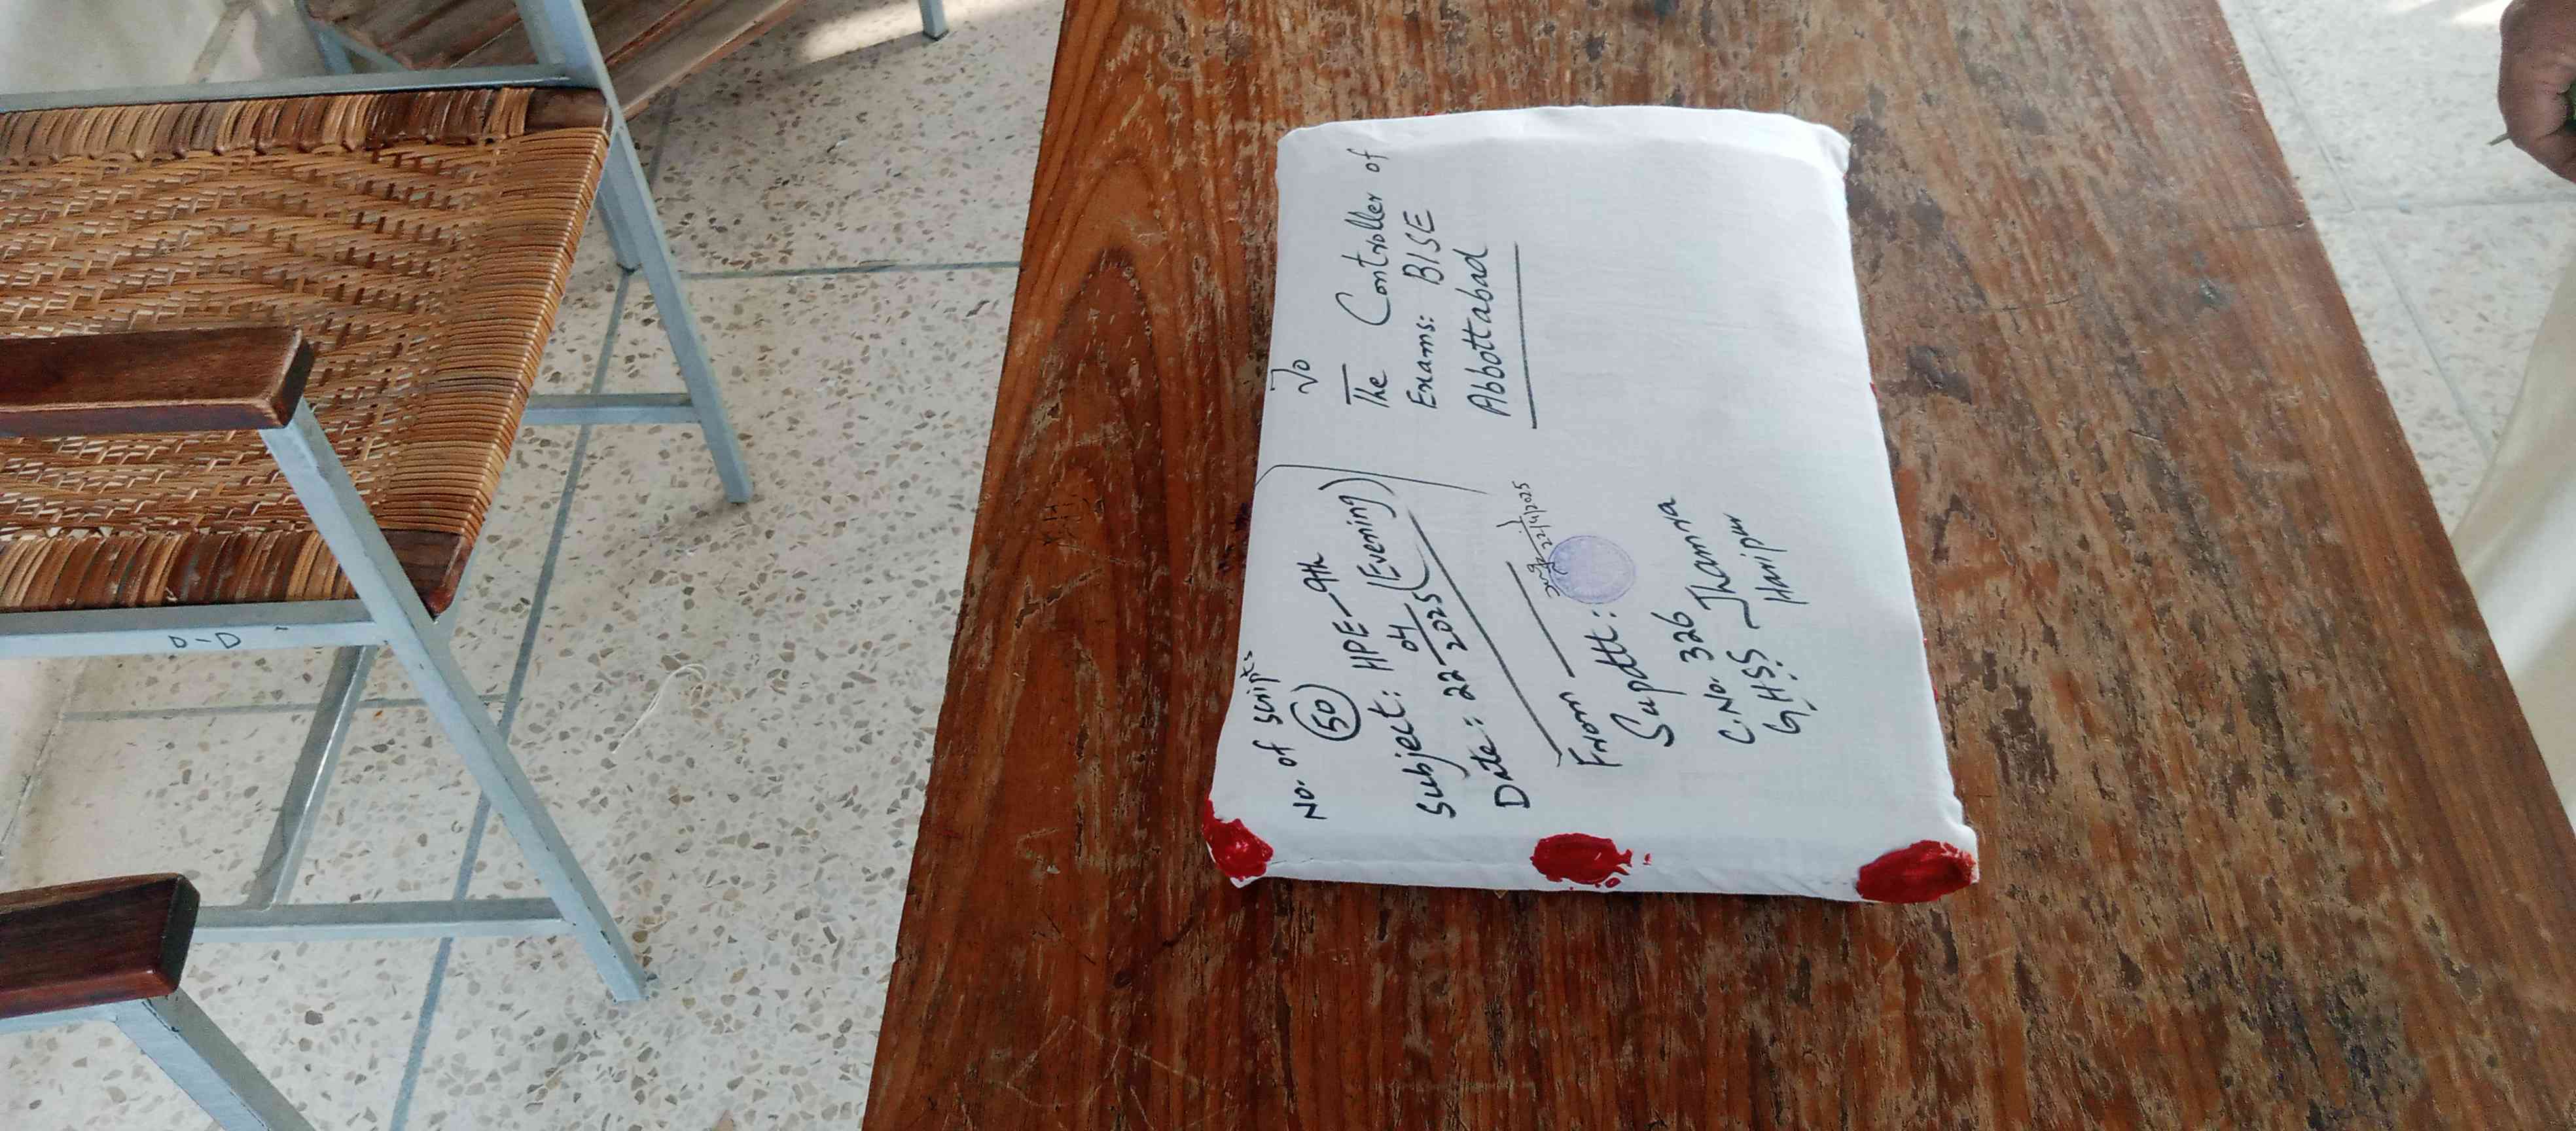 No. of scripts
50
Subject: HPE-9th
Date: 22-04-2025 (Evening)
To
The Controller of
Exams: BISE
Abbottabad
22/4/2025
From
Supdtt:
C.No. 326
G.H.S.S Jhamra
Haripur